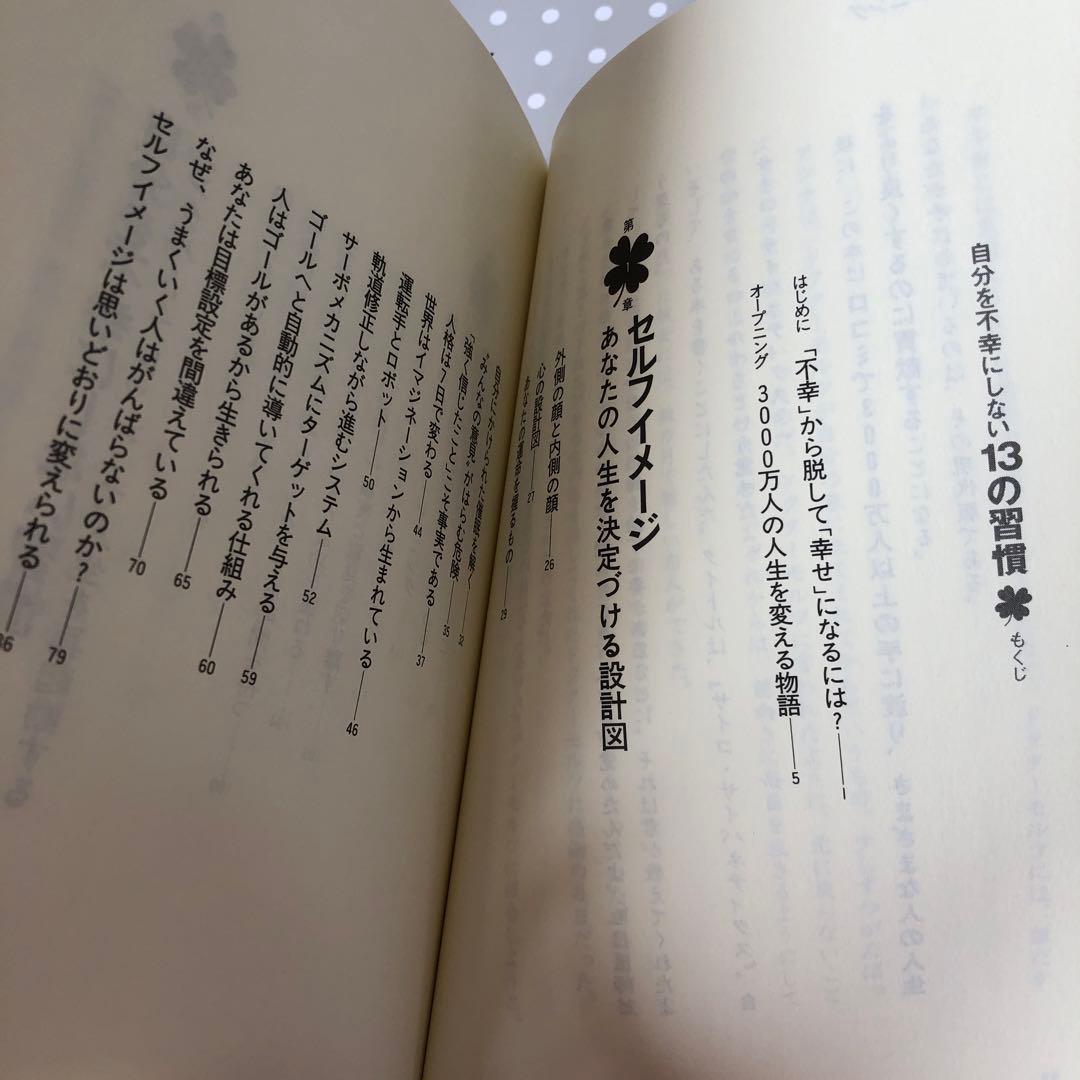 自分を不幸にしない13の習慣 もくじ
はじめに 「不幸」から脱して「幸せ」になるには？ 1
オープニング 3000万人の人生を変える物語 5
第1章 セルフイメージ
あなたの人生を決定づける設計図
外側の顔と内側の顔 26
心の設計図 27
あなたの運命を握るもの 29
自分にかけられた催眠を解く 32
“みんなの意見”がはらむ危険 35
「強く信じたこと」こそ事実である 37
人格は7日で変わる 44
世界はイマジネーションから生まれている 46
運転手とロボット 50
軌道修正しながら進むシステム 52
サーボメカニズムにターゲットを与える 59
ゴールへと自動的に導いてくれる仕組み 60
人はゴールがあるから生きられる 65
あなたは目標設定を間違えている 70
なぜ、うまくいく人はがんばらないのか？ 79
セルフイメージは思いどおりに変えられる